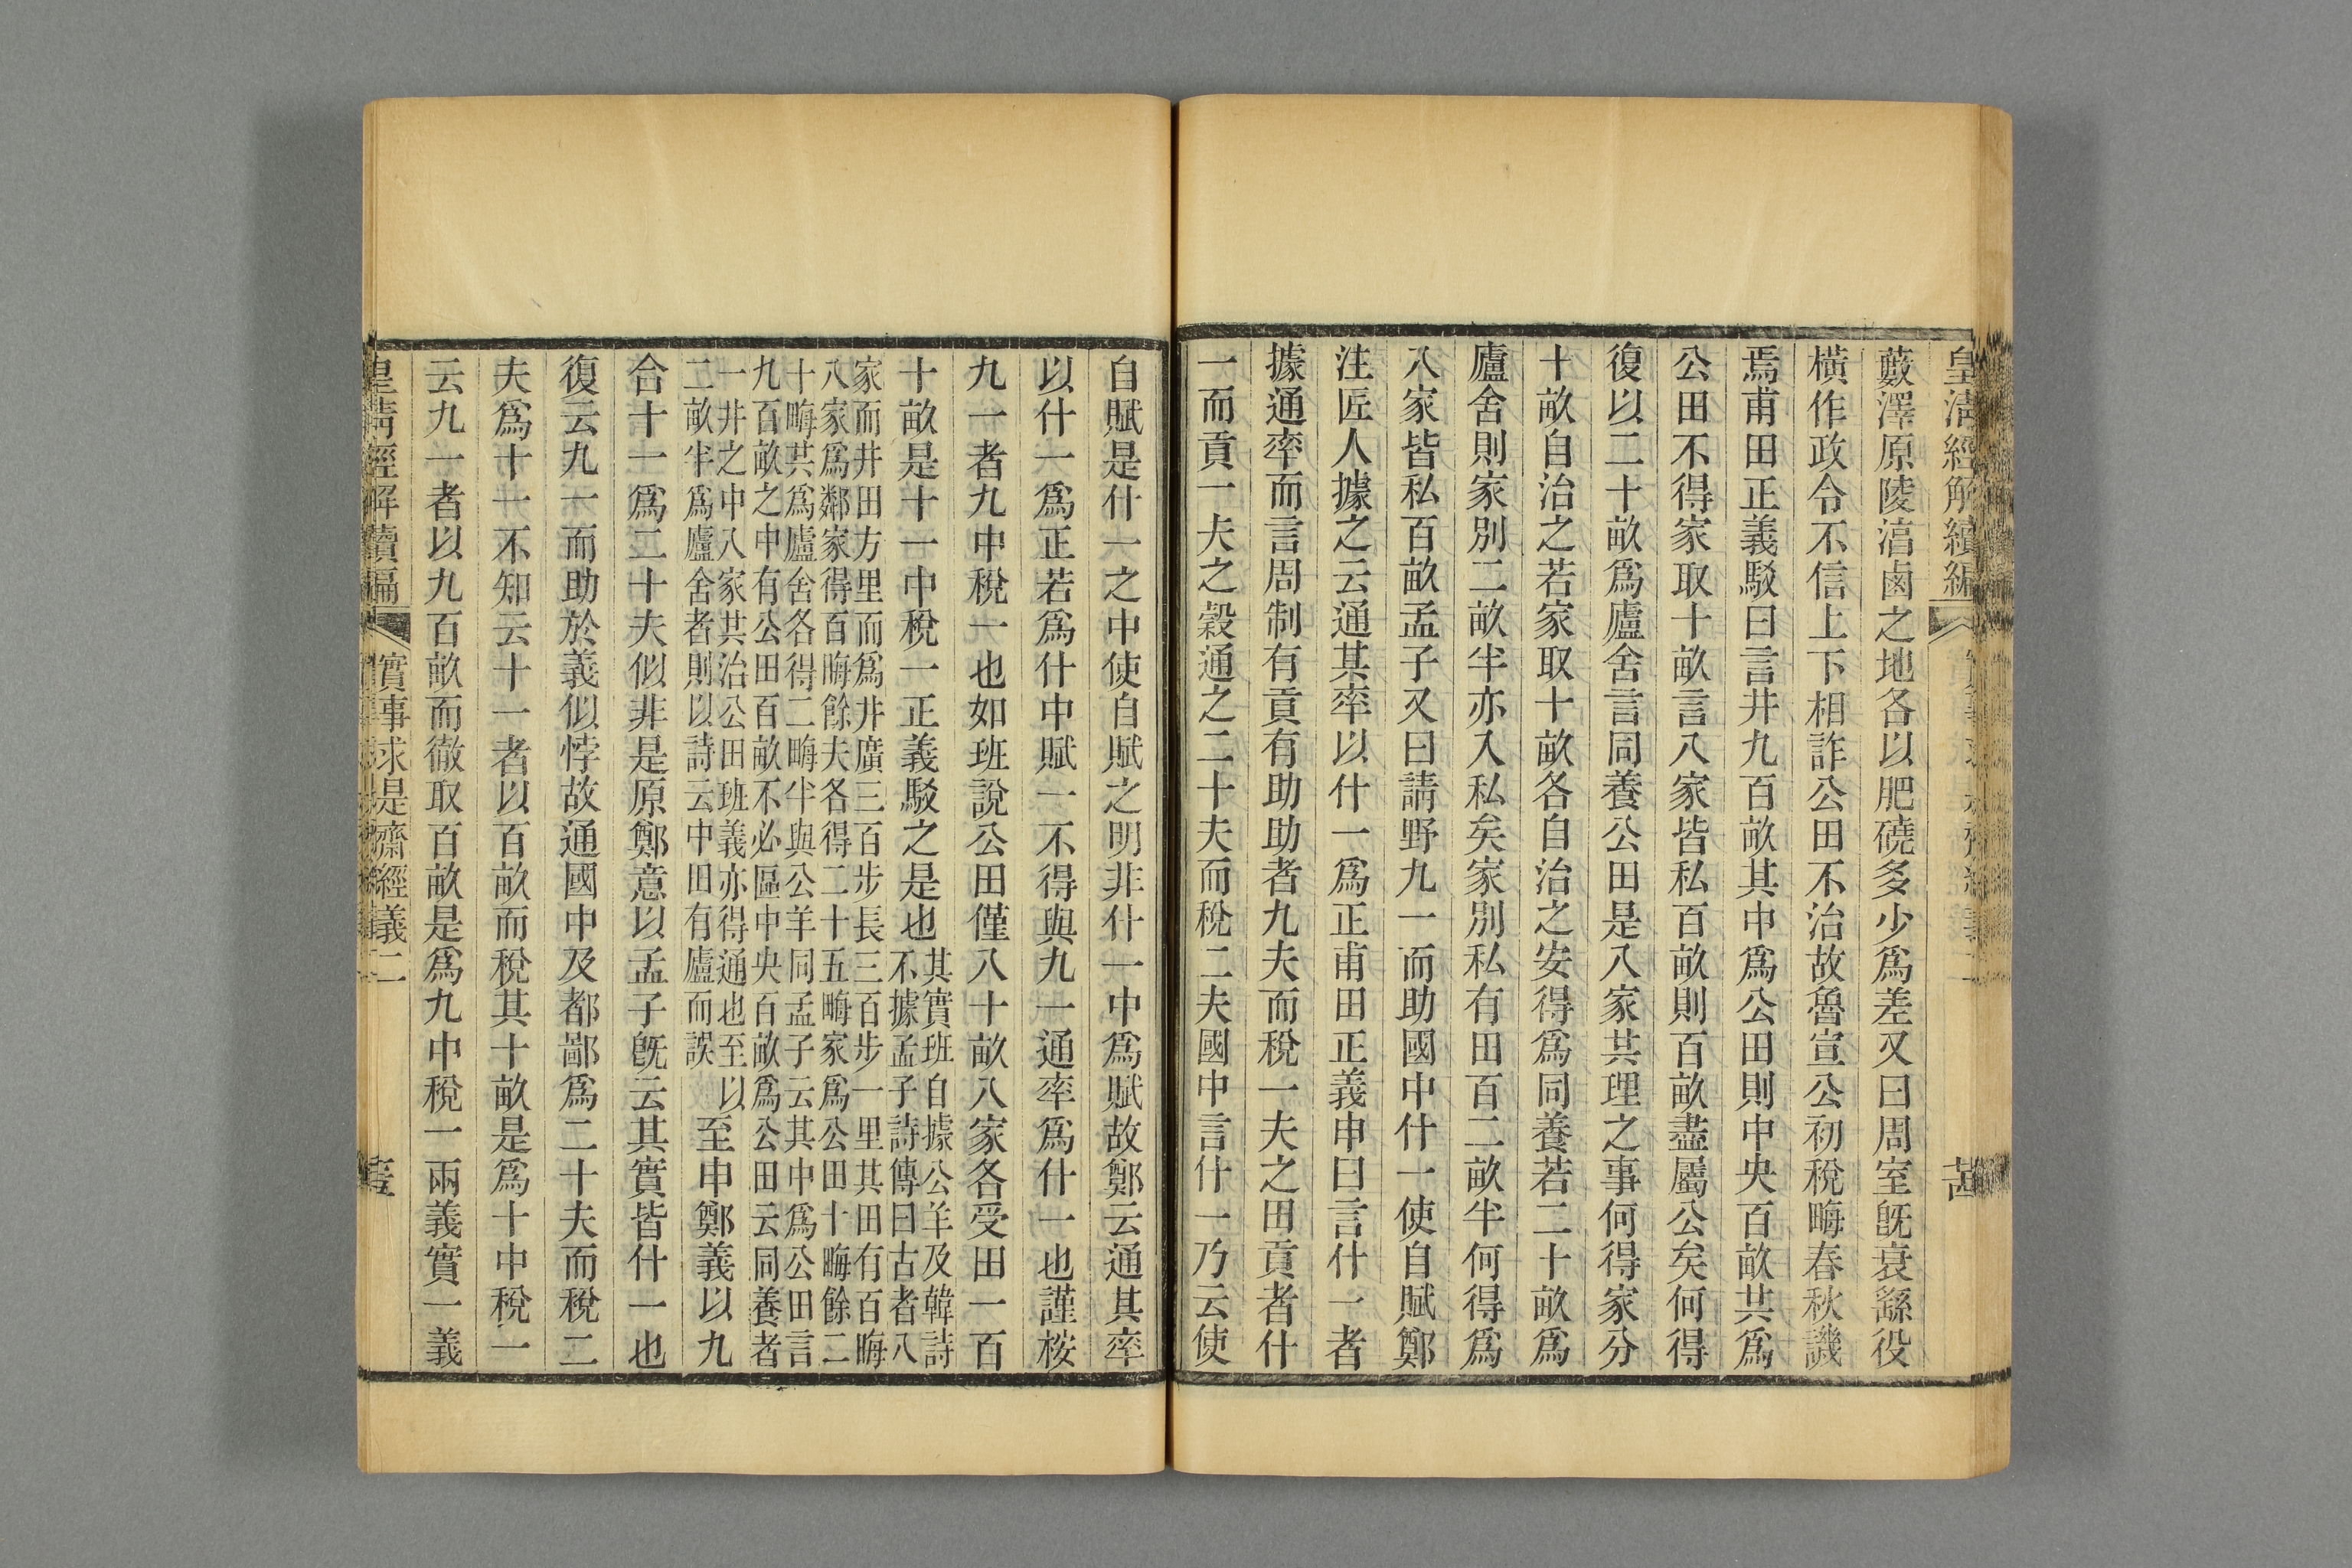 皇清經解續編
藪澤原陵淯鹵之地各以肥磽多少爲差又曰周室旣衰繇役
橫作政令不信上下相詐公田不治故魯宣公初稅畮春秋譏
焉甫田正義駁曰言井九百畝其中爲公田則中央百畝共爲
公田不得家取十畝言八家皆私百畝則百畝盡屬公矣何得
復以二十畝爲廬舍言同養公田是八家共理之事何得家分
十畝自治之若家取十畝各自治之安得爲同養若二十畝爲
廬舍則家別二畝半亦入私矣家別私有田百二畝半何得爲
八家皆私百畝孟子又曰請野九一而助國中什一使自賦鄭
注匠人據之云通其率以什一爲正甫田正義申曰言什一者
據通率而言周制有貢有助助者九夫而稅一夫之田貢者什
一而貢一夫之穀通之二十夫而稅二夫國中言什一乃云使
自賦是什一之中使自賦之明非什一中爲賦故鄭云通其率
以什一爲正若爲什中賦一不得與九一通率爲什一也謹桉
九一者九中稅一也如班說公田僅八十畝八家各受田一百
十畝是十一中稅一正義駁之是也
其實班自據公羊及韓詩
不據孟子詩傳曰古者八
家而井田方里而爲井廣三百步長三百步一里其田有百畮
八家爲鄰家得百畮餘夫各得二十五畮家爲公田十畮餘二
十畮共爲廬舍各得二畮半與公羊同孟子云其中爲公田言
九百畝之中有公田百畝不必區中央百畝爲公田云同養者
一井之中八家共治公田班義亦得通也至以
二畝半爲廬舍者則以詩云中田有廬而誤
至申鄭義以九
合十一爲二十夫似非是原鄭意以孟子旣云其實皆什一也
復云九一而助於義似悖故通國中及都鄙爲二十夫而稅二
夫爲十一不知云十一者以百畝而稅其十畝是爲十中稅一
云九一者以九百畝而徹取百畝是爲九中稅一兩義實一義
皇清經解續編　實事求是齋經義二